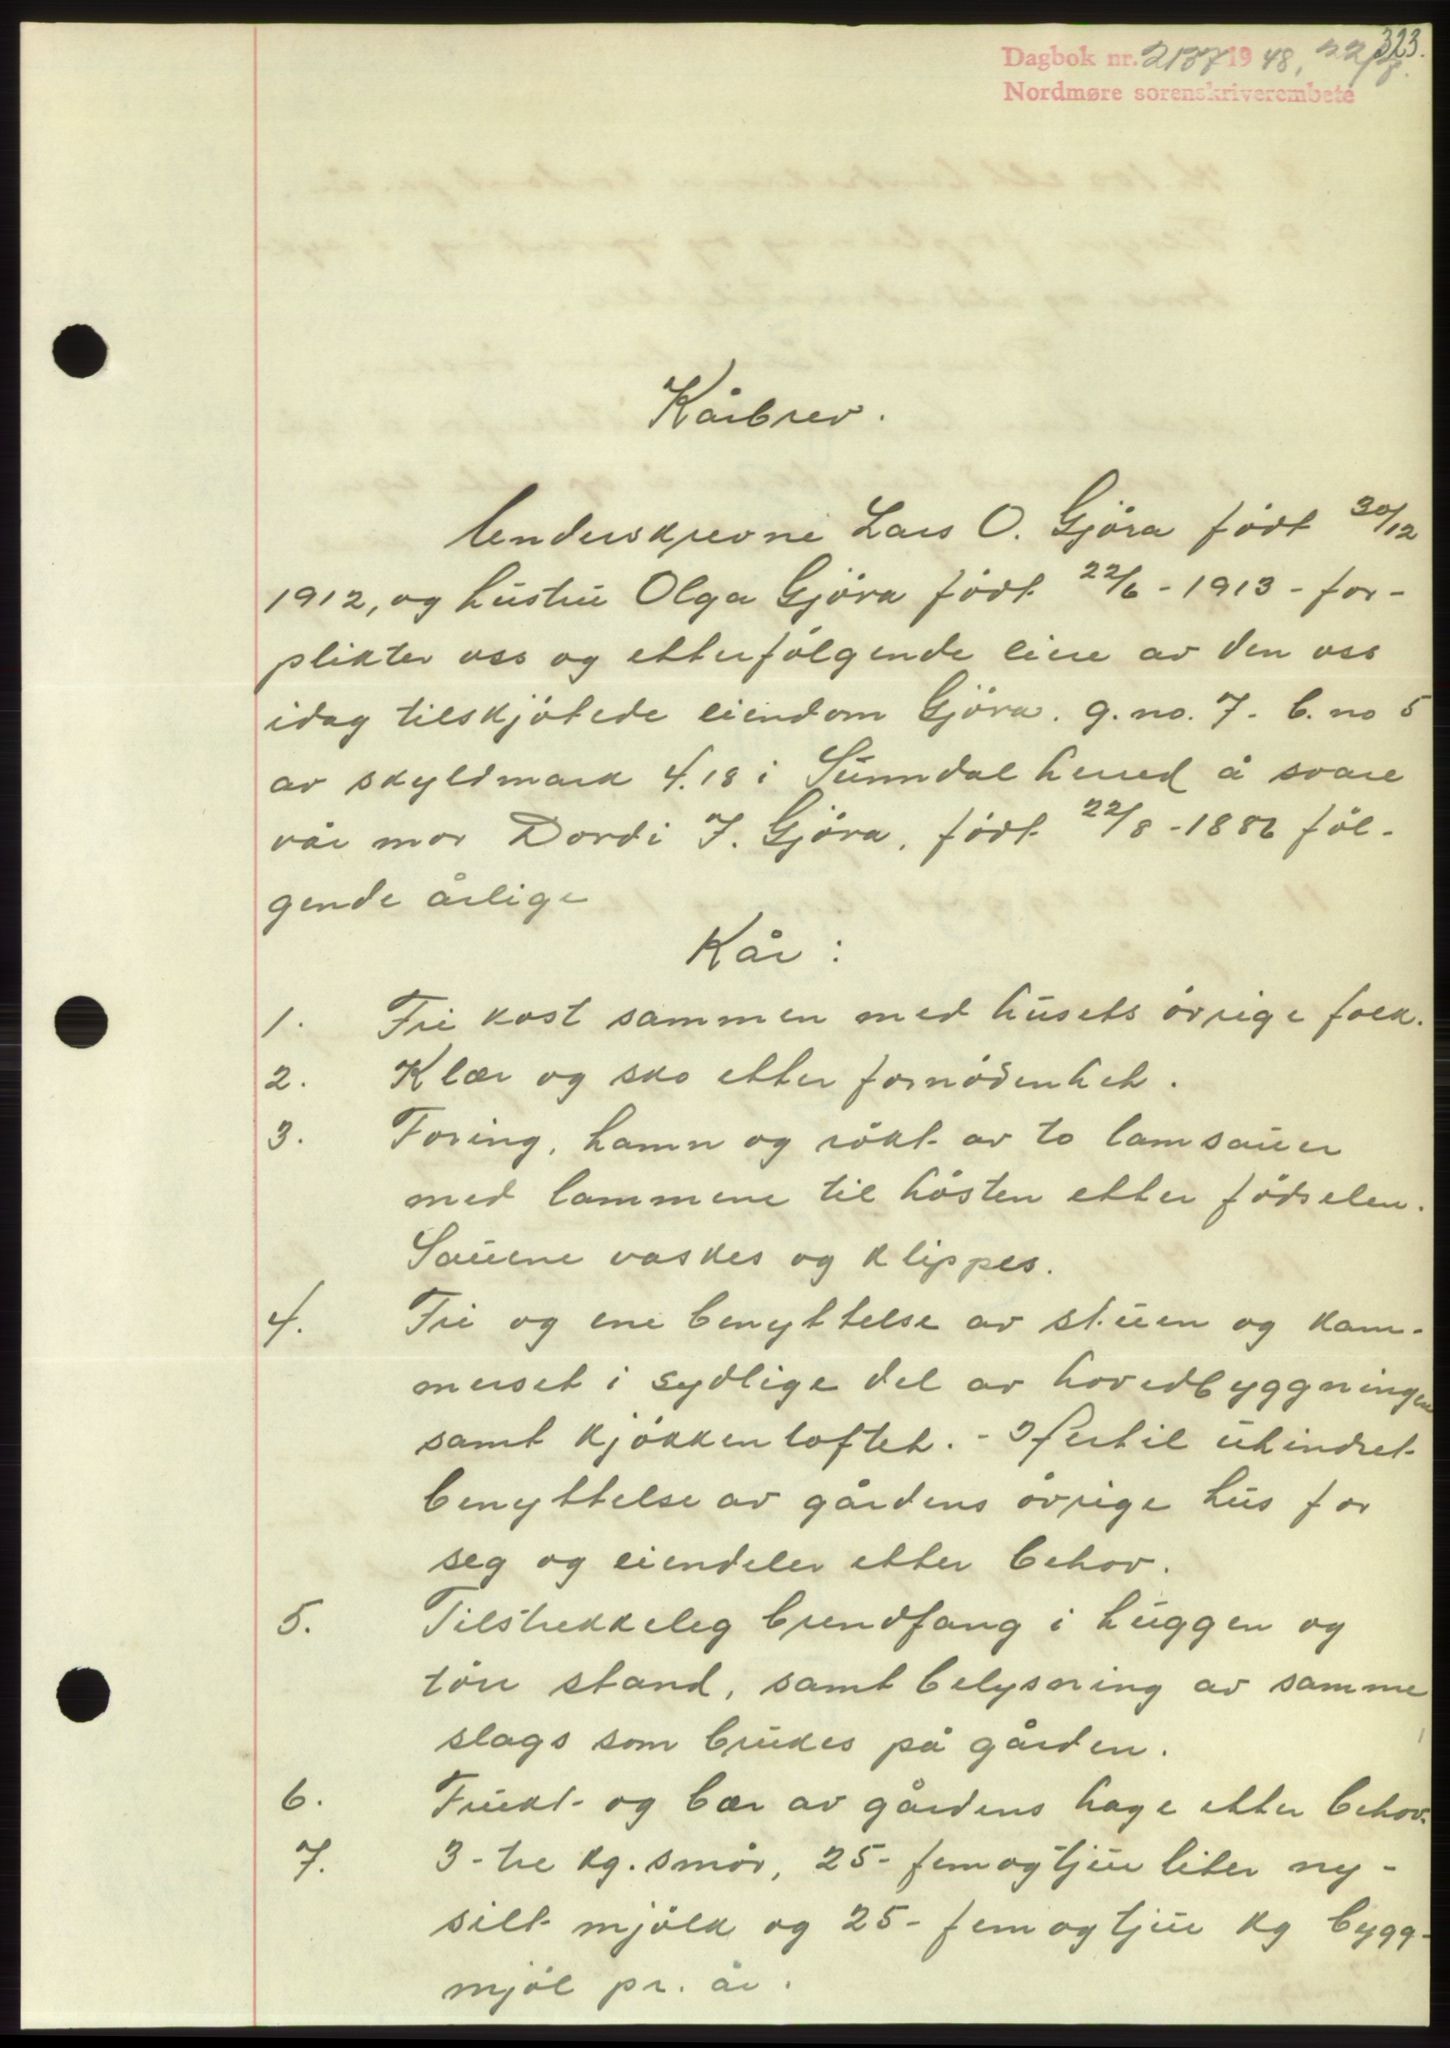 323.
Dagbok nr. 2187 1948, 22/8.
Nordmøre sorenskriverembete
Kårbrev.
Underskrevne Lars O. Gjöra födt 30/12
1912, og hustru Olga Gjöra födt 22/6 - 1913 - for-
plikter oss og etterfölgende eiere av den oss
idag tilskjötede eiendom Gjöra. g.no. 7. b. no 5
av skyldmark 4.18 i Sunndal herred å svare
vår mor Dordi J. Gjöra, födt 22/8 - 1886 föl-
gende årlige
Kår :
1. Fri kost sammen med husets övrige folk.
2. Klær og sko etter fornödenhet.
3. Foring, hamn og rökt av to lamsauer
med lammene til hösten etter födselen.
Sauene vaskes og klippes.
4. Fri og ene benyttelse av stuen og kam-
merset i sydlige del av hovedbyggningen
samt kjökkenloftet. - Hertil uhindret
benyttelse av gårdens övrige hus for
seg og eiendeler etter behov.
5. Tilstrekkeleg brendfang i huggen og
törr stand, samt belysning av samme
slags som brukes på gården.
6. Frukt og bær av gårdens hage etter behov.
7. 3 - tre kg. smör, 25 - femogtjue liter ny-
silt mjölk og 25 - femogtjue kg bygg-
mjöl pr. år.